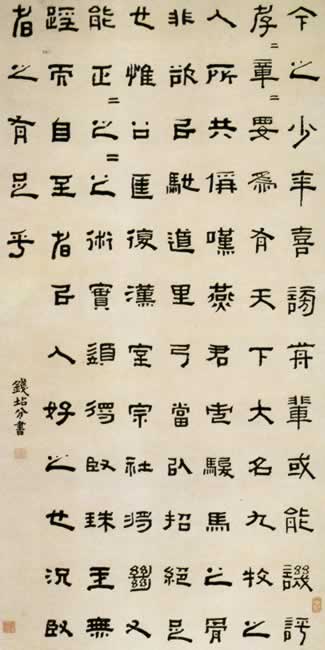 今之少年喜謗前輩或能譏評
孝〻章〻要為有天下大名九牧之
人所共偁嘆燕君市駿馬之骨
非欲以馳道里乃當以招絕足
也惟公匡復漢室宗社將絕又
能正〻之〻之術實須得臤珠玉無
踁而自至者以人好之也況臤
者之有足乎
錢坫分書